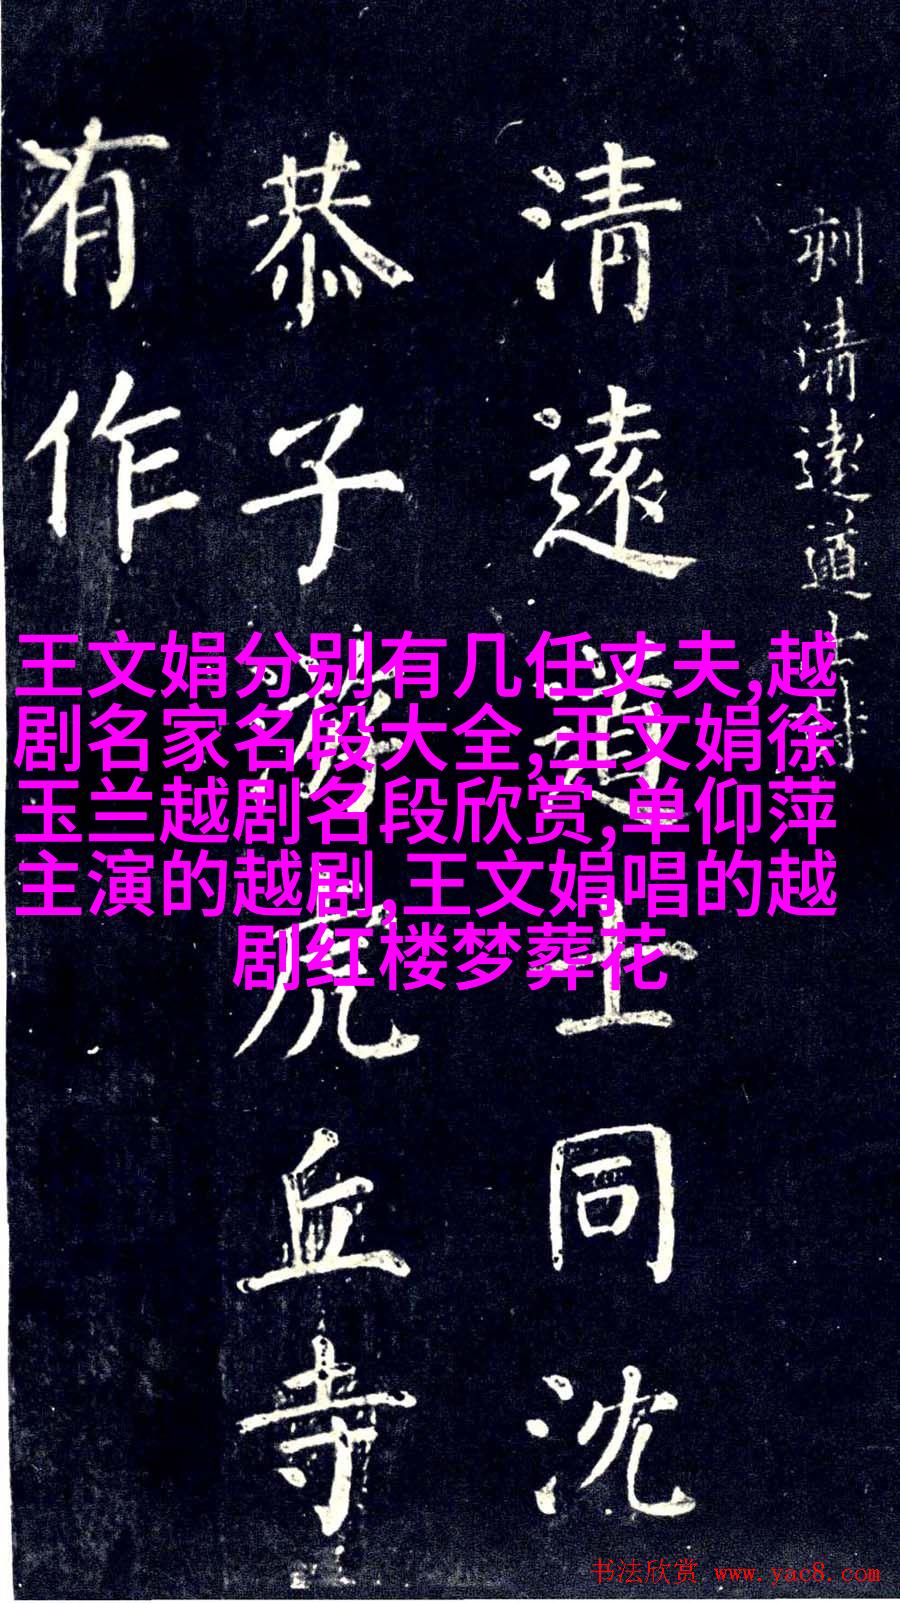 刻清遠道士詩
清遠道士同沈
恭子遊虎丘寺
有作
王文娟分别有几任丈夫,越
剧名家名段大全,王文娟徐
玉兰越剧名段欣赏,单仰萍
主演的越剧,王文娟唱的越
剧红楼梦葬花
书法欣赏 www.yac8.com